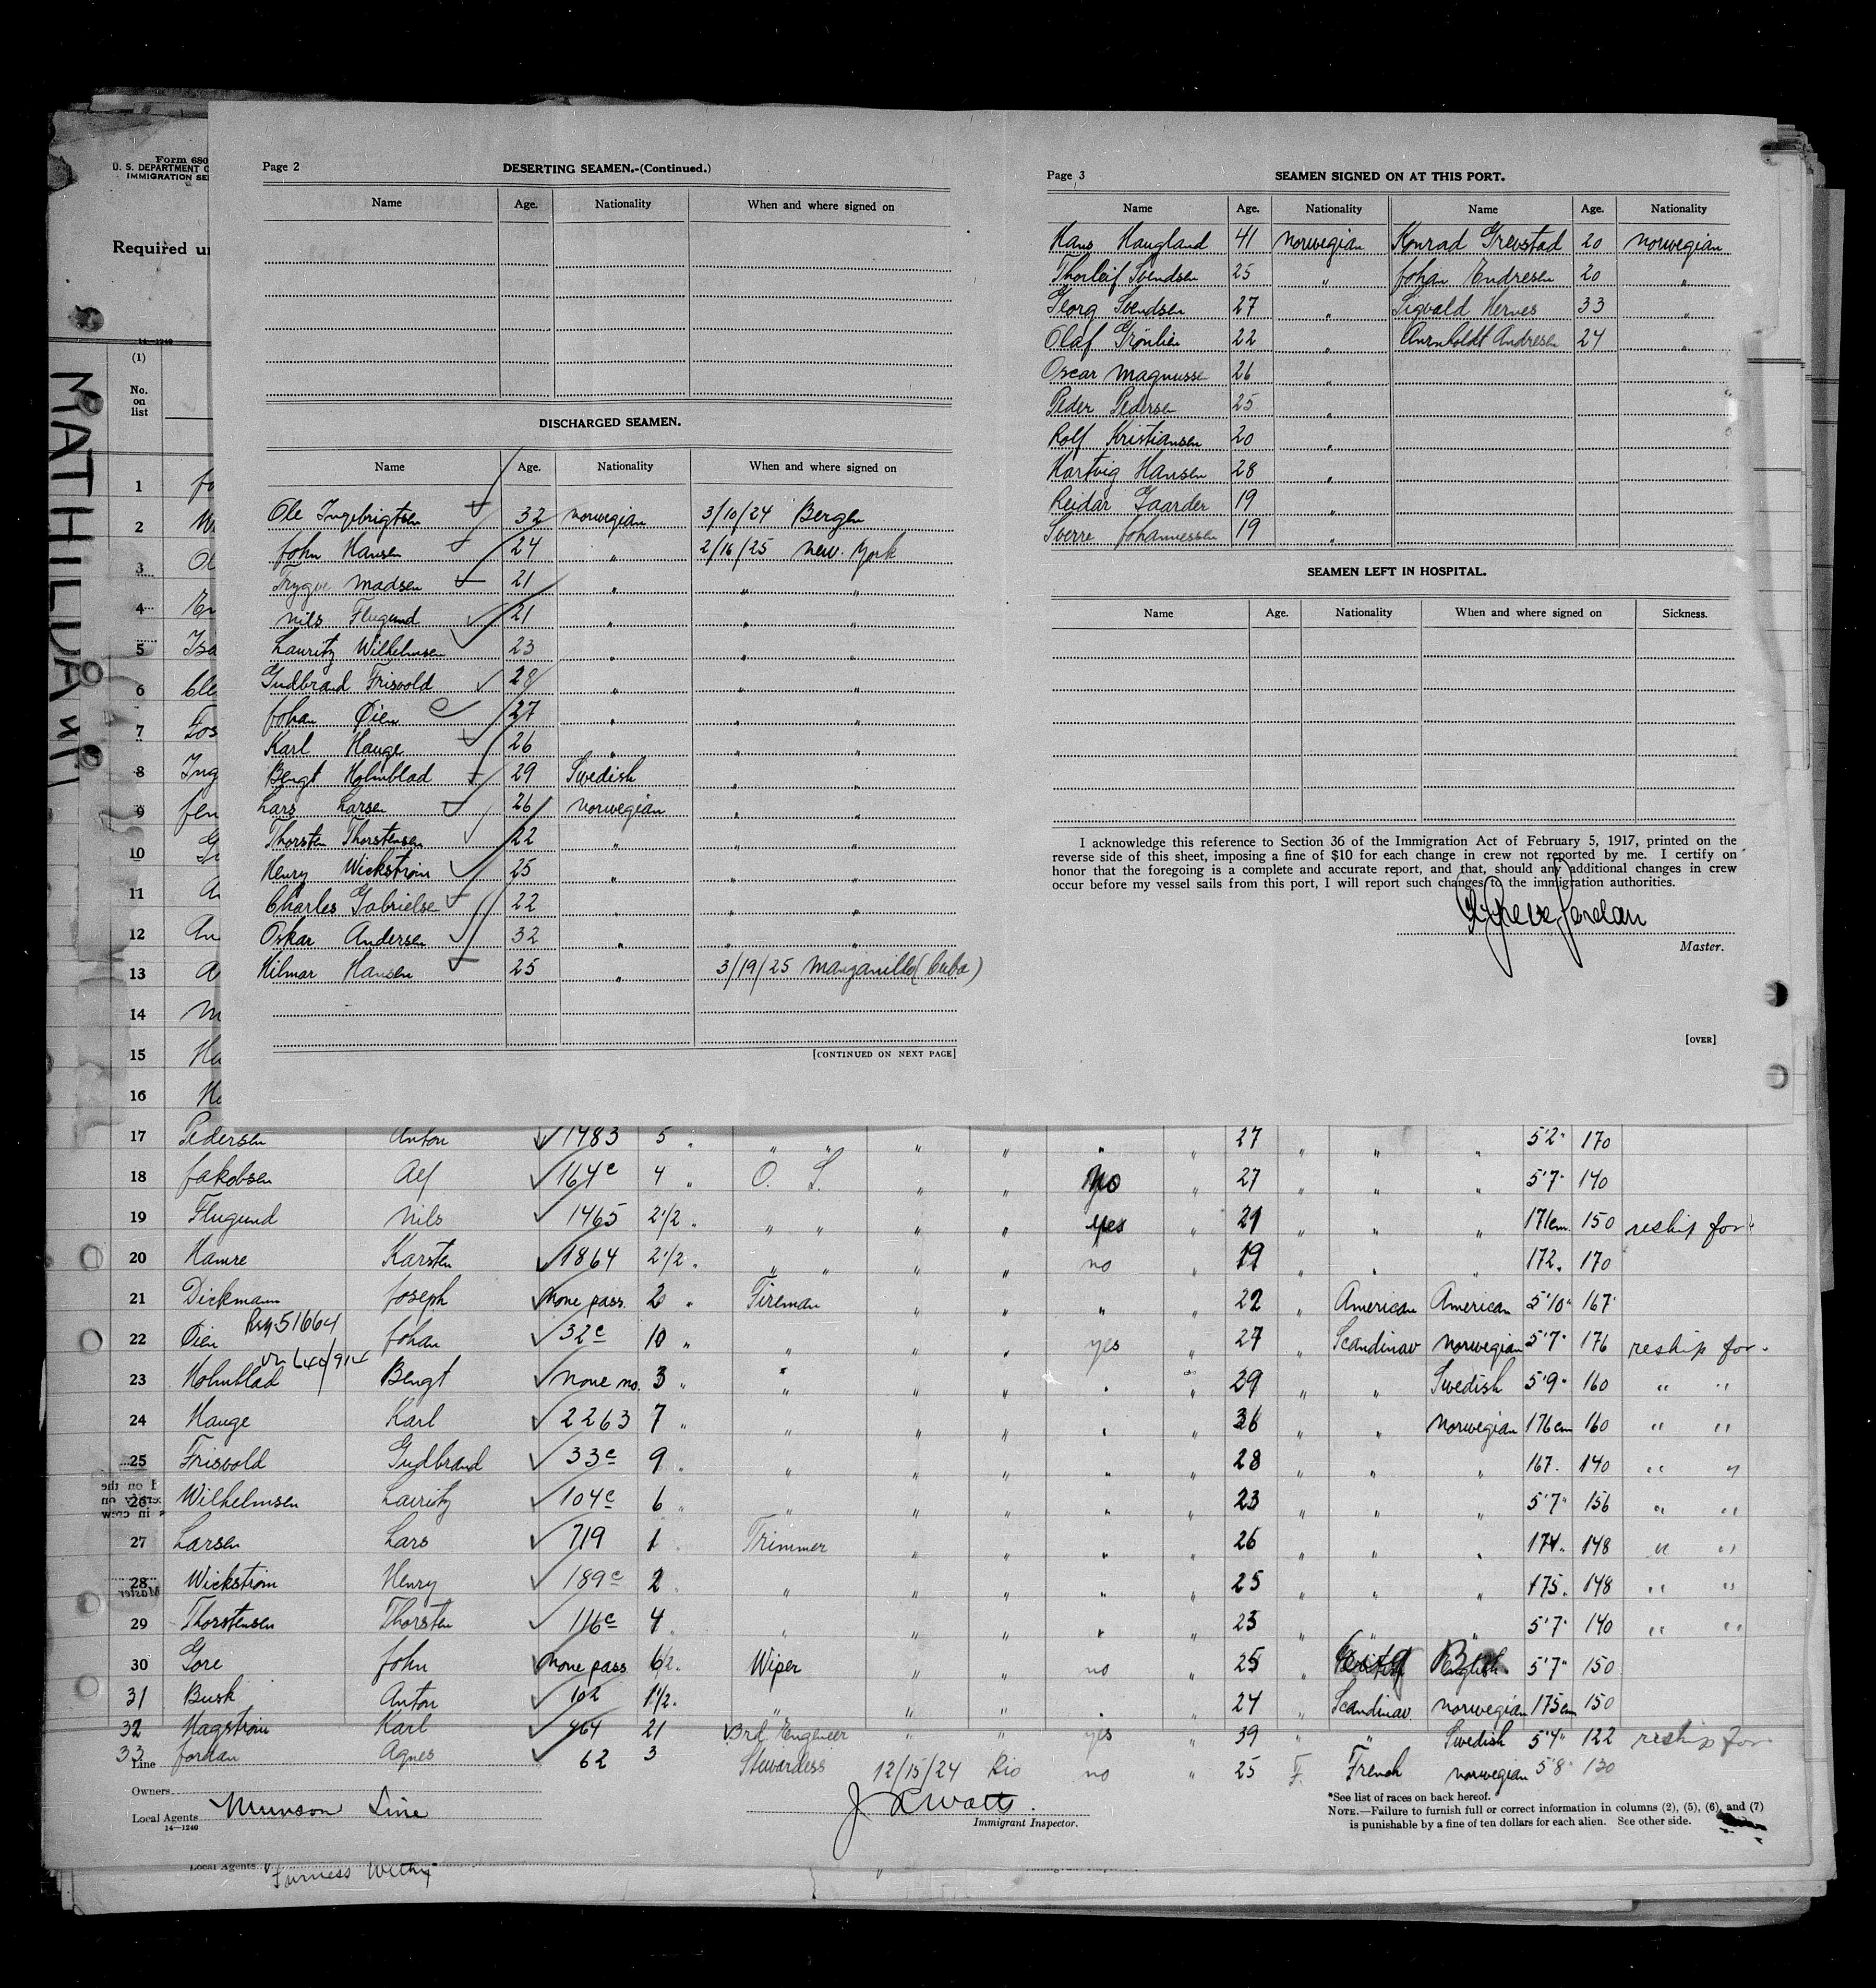 Form 680
U. S. DEPARTMENT O
IMMIGRATION SE
Required un
14—1240
(1)
No.
on
list
MATHILDA
1 Jo
2
3 Ol
4
5 Isa
6 Cle
7 Fos
8 Ing
9 Jen
10
11 A
12 An
13 A
14 M
15 Ha
16
Page 2
DESERTING SEAMEN.-(Continued.)
Name Age. Nationality When and where signed on
DISCHARGED SEAMEN.
Name Age. Nationality When and where signed on
Ole Ingebrigtsen 32 norwegian 3/10/24 Bergen
John Hansen 24 " 2/16/25 New York
Trygve Madsen 21 " " "
Nils Flugund 21 " " "
Lauritz Wilhelmsen 23 " " "
Gudbrand Frisvold 28 " " "
Johan Øien 27 " " "
Karl Hauge 26 " " "
Bengt Holmblad 29 Swedish " "
Lars Larsen 26 norwegian " "
Thorsten Thorstensen 22 " " "
Henry Wickstrøm 25 " " "
Charles Gabrielsen 22 " "
Oskar Andersen 32 " " "
Hilmar Hansen 25 " 3/19/25 Manganillo (Cuba)
[CONTINUED ON NEXT PAGE]
Page 3
SEAMEN SIGNED ON AT THIS PORT.
Name Age. Nationality Name Age. Nationality
Hans Haugland 41 norwegian Konrad Grevstad 20 norwegian
Thorleif Svendsen 25 " Johan Endresen 20 "
Georg Svendsen 27 " Sigvald Hernes 33 "
Olaf Grønlien 22 " Andresen 24 "
Oscar Magnussen 26 "
Peder Pedersen 25 "
Rolf Kristiansen 20 "
Hartvig Hansen 28 "
Reidar Gaarder 19 "
Sverre Johannessen 19 "
SEAMEN LEFT IN HOSPITAL.
Name Age. Nationality When and where signed on Sickness.
I acknowledge this reference to Section 36 of the Immigration Act of February 5, 1917, printed on the
reverse side of this sheet, imposing a fine of $10 for each change in crew not reported by me. I certify on
honor that the foregoing is a complete and accurate report, and that, should any additional changes in crew
occur before my vessel sails from this port, I will report such changes to the immigration authorities.
Jordan
Master.
[OVER]
17 Pedersen Anton 1483 5 " " " " " " " 27 " " " 5'2" 170
18 Jakobsen Alf 164c 4 " O. S. " " no " 27 " " " 5'7" 140
19 Flugund Nils 1465 2 1/2 " " " " " yes " 21 " " " 171cm. 150 reship for.
20 Hamre Karsten 1864 2 1/2 " " " " " no " 19 " " " 172. 170
21 Dickmann Joseph none pass. 2 " Fireman " " " " 22 " American American 5'10" 167
51664
22 Øien Johan 32c 10 " " " " yes " 27 " Scandinav norwegian 5'7" 176 reship for.
640/914
23 Holmblad Bengt none no. 3 " " " " " " 29 " " Swedish 5'9" 160 " "
24 Hauge Karl 2263 7 " " " " " " 36 " " norwegian 176cm 160 " "
25 Frisvold Gudbrand 33c 9 " " " " " " 28 " " " 167. 140 " "
26 Wilhelmsen Lauritz 104c 6 " " " " " " 23 " " " 5'7" 156 " "
27 Larsen Lars 719 1 " Trimmer " " " " 26 " " " 174. 148 " "
28 Wickstrøm Henry 189c 2 " " " " " " 25 " " " 175. 148 " "
29 Thorstensen Thorsten 116c 4 " " " " " " 23 " " " 5'7" 140 " "
30 Gore John none pass 6 1/2 " Wiper " " no " 25 " English 5'7" 150
31 Busk Anton 102 1 1/2 " " " " " " 24 " Scandinav. norwegian 175cm 150
32 Hagstrøm Karl 464 21 3rd Engineer " " yes " 39 " " Swedish 5'4" 122 reship for
33 Jordan Agnes 62 3 Stewardess 12/15/24 Rio no " 25 F. French norwegian 5'8" 130
Line
Owners
Local Agents Munson Line
14—1240
J Watts.
Immigrant Inspector.
*See list of races on back hereof.
NOTE.—Failure to furnish full or correct information in columns (2), (5), (6), and (7)
is punishable by a fine of ten dollars for each alien. See other side.
Local Agents Furness Withy